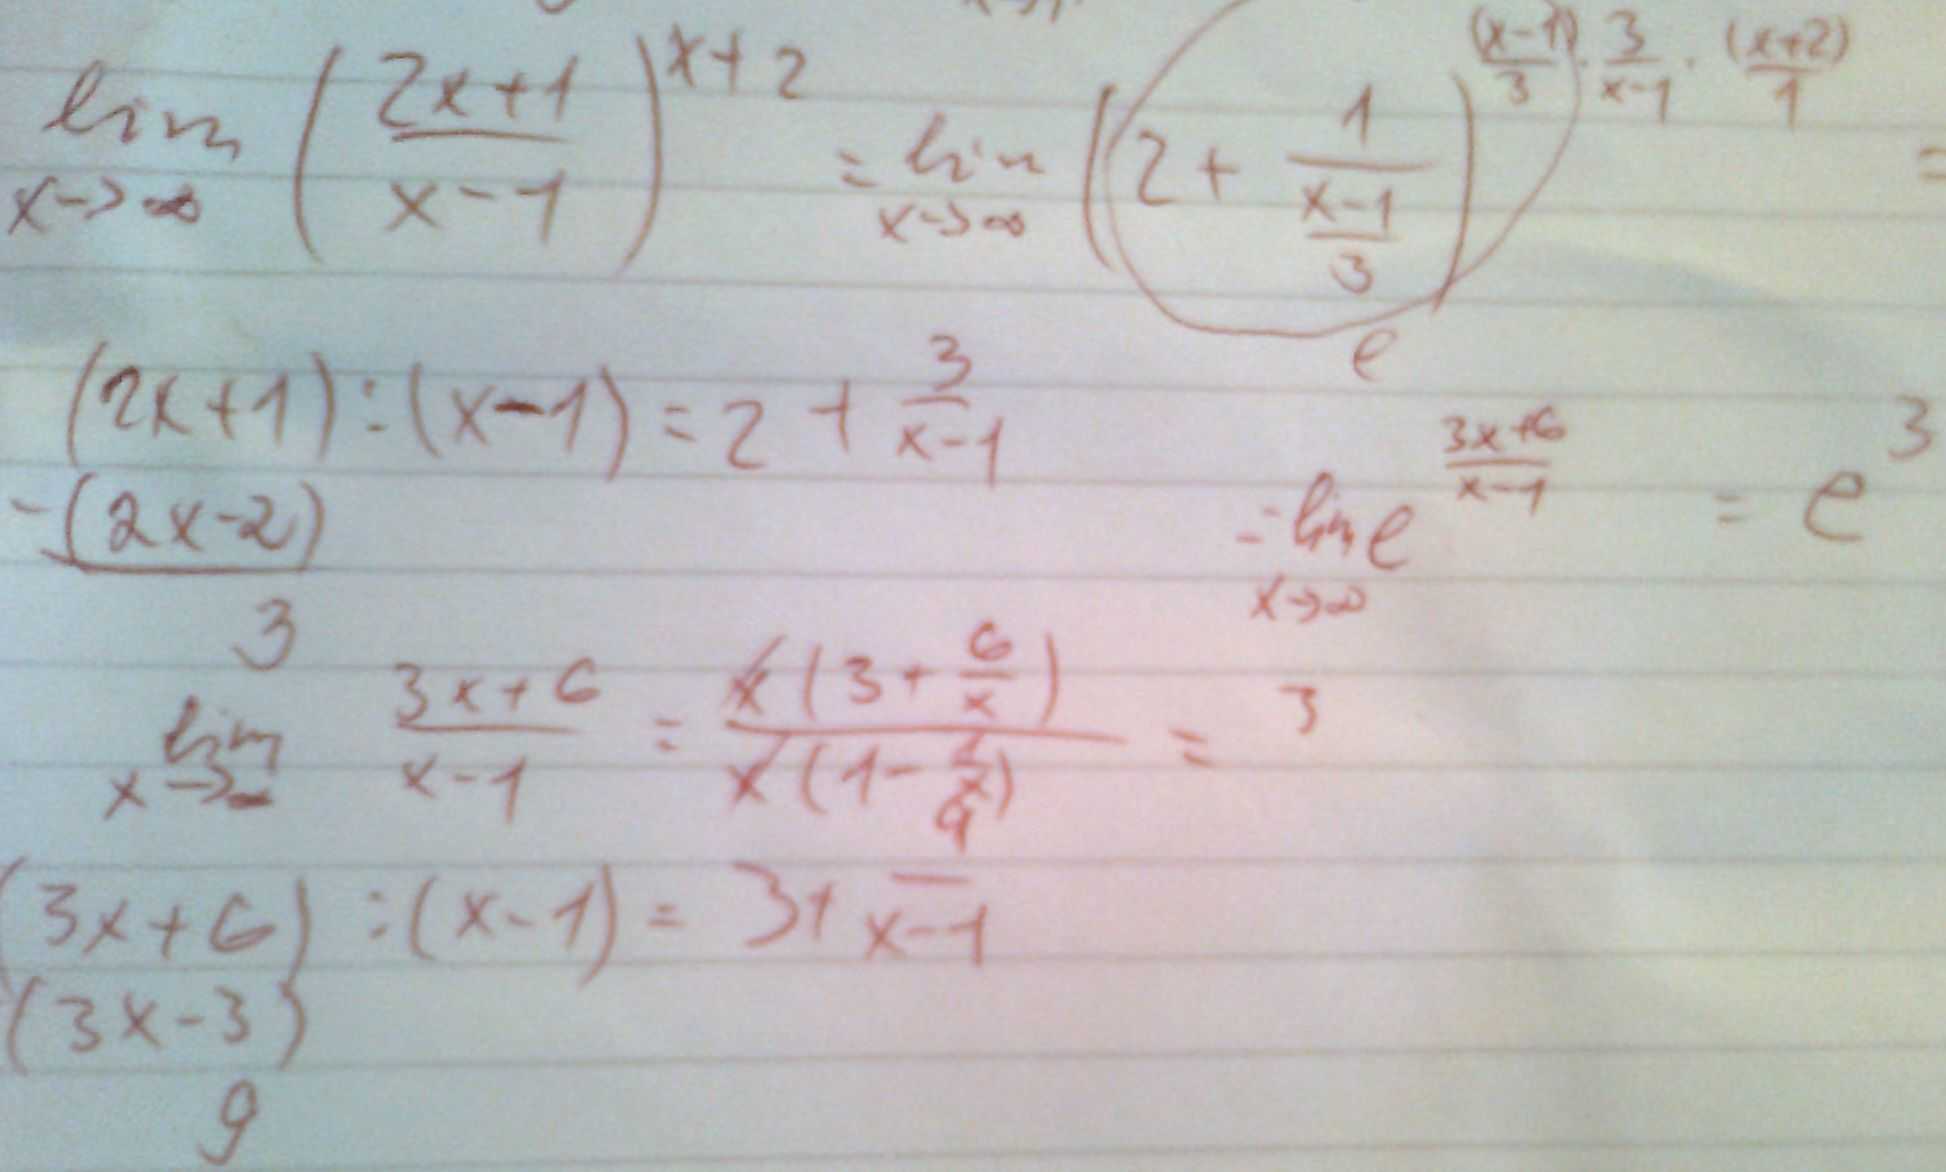 lim x→∞ ( (2x+1)/(x-1) )^(x+2) = lim x→∞ ( 2 + 1/((x-1)/3) )^((x-1)/3 · 3/(x-1) · (x+2)/1) =
e
(2x+1) : (x-1) = 2 + 3/(x-1)
-(2x-2)
3
= lim x→∞ e^((3x+6)/(x-1)) = e^3
lim x→∞ (3x+6)/(x-1) = x(3+6/x)/x(1-1/x) = 3
(3x+6) : (x-1) = 3+ 9/(x-1)
(3x-3)
9